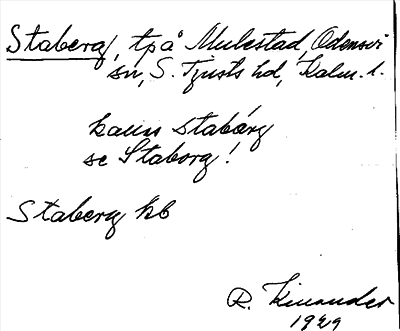 Staberg, tp å Mulestad, Odensvi
sn, S. Tjusts hd, Kalm. l.
kallas Stabärg
se Staborg!
Staberg kb
R. Kinander
1929